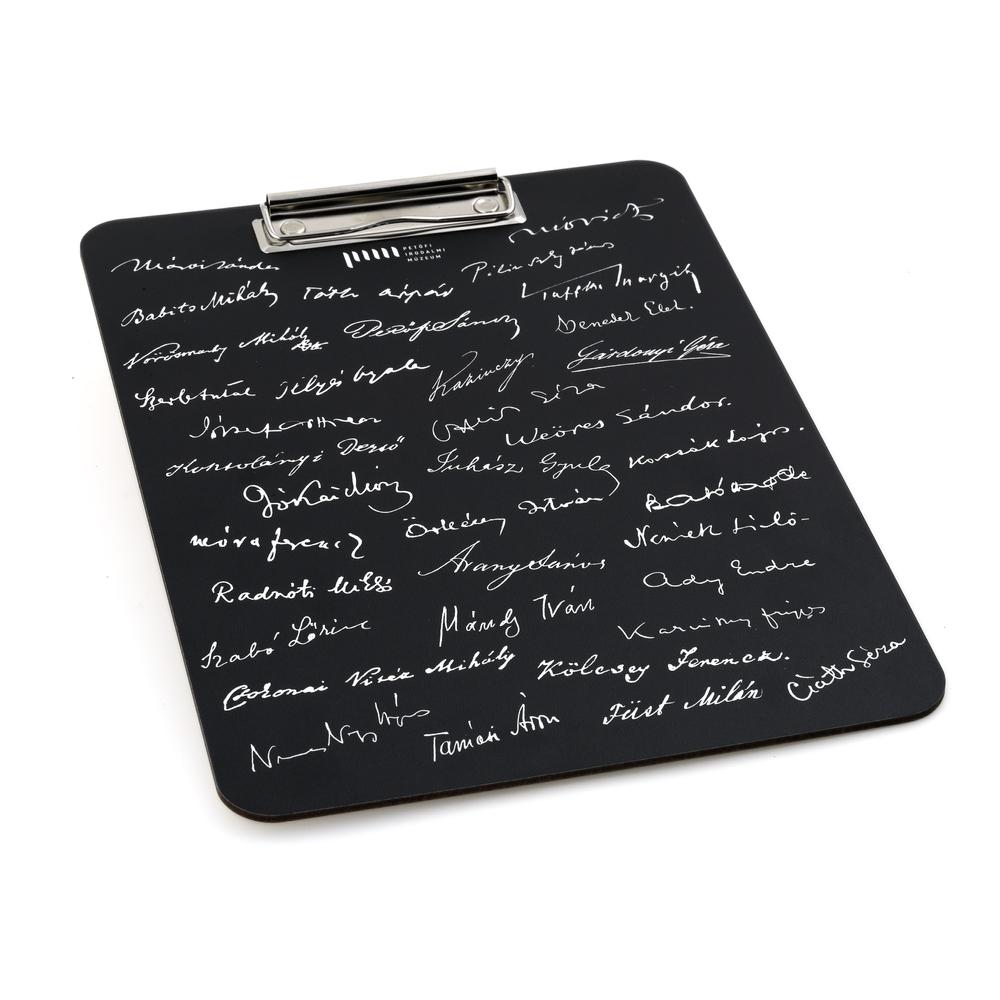 PETŐFI
IRODALMI
MÚZEUM
Móricz
Márai Sándor
Pilinszky János
Babits Mihály Tóth Árpád Kaffka Margit
Vörösmarty Mihály Petőfi Sándor Benedek Elek.
Szerb Antal Illyés Gyula Kazinczy Gárdonyi Géza
József Attila Géza
Kosztolányi Dezső Weöres Sándor.
Juhász Gyula Kassák Lajos.
Jókai Mór
móra ferencz Örkény István
Radnóti Mikló Arany János Németh László
Szabó Lőrinc Mándy Iván Ady Endre
Csokonai Vitéz Mihály Kölcsey Ferencz. Karinthy frigyes
Nemes Nagy Ágnes Tamási Áron Füst Milán Csáth Géza